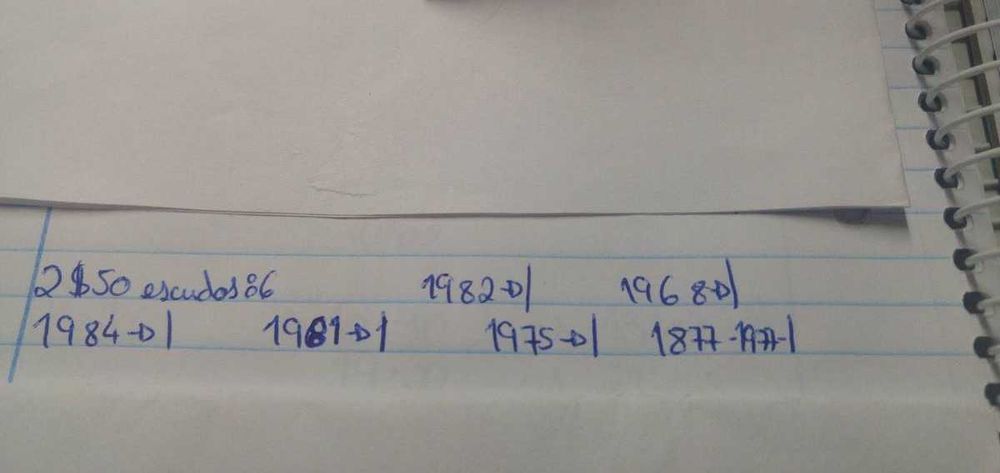 2$50 escudos:6 1982→| 1968→|
1984→| 1981→| 1975→| 1877-1977-|